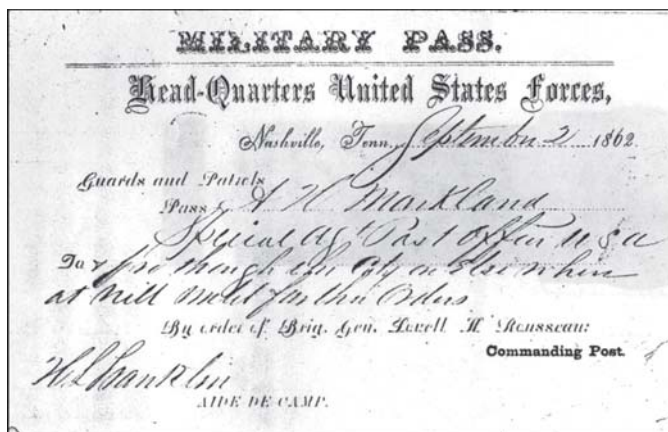 MILITARY PASS.
Head-Quarters United States Forces,
Nashville, Tenn. September 2 1862
Guards and Patrols
Pass A H Markland
Special Agt Post Office U S A
To & fro through our City or Elsewhere
at will until further Orders
By order of Brig. Gen. Lovell H. Rousseau:
Commanding Post.
AIDE DE CAMP.